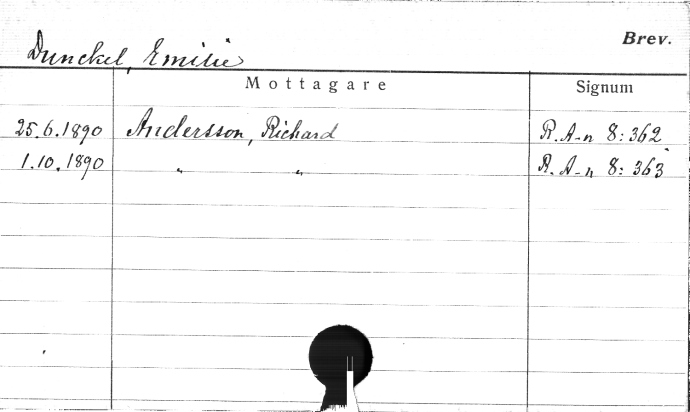 Dunckel, Emilie
Brev.
Mottagare Signum
25.6.1890 Andersson, Richard R.A-n 8:362.
1.10.1890 " " R.A-n 8:363